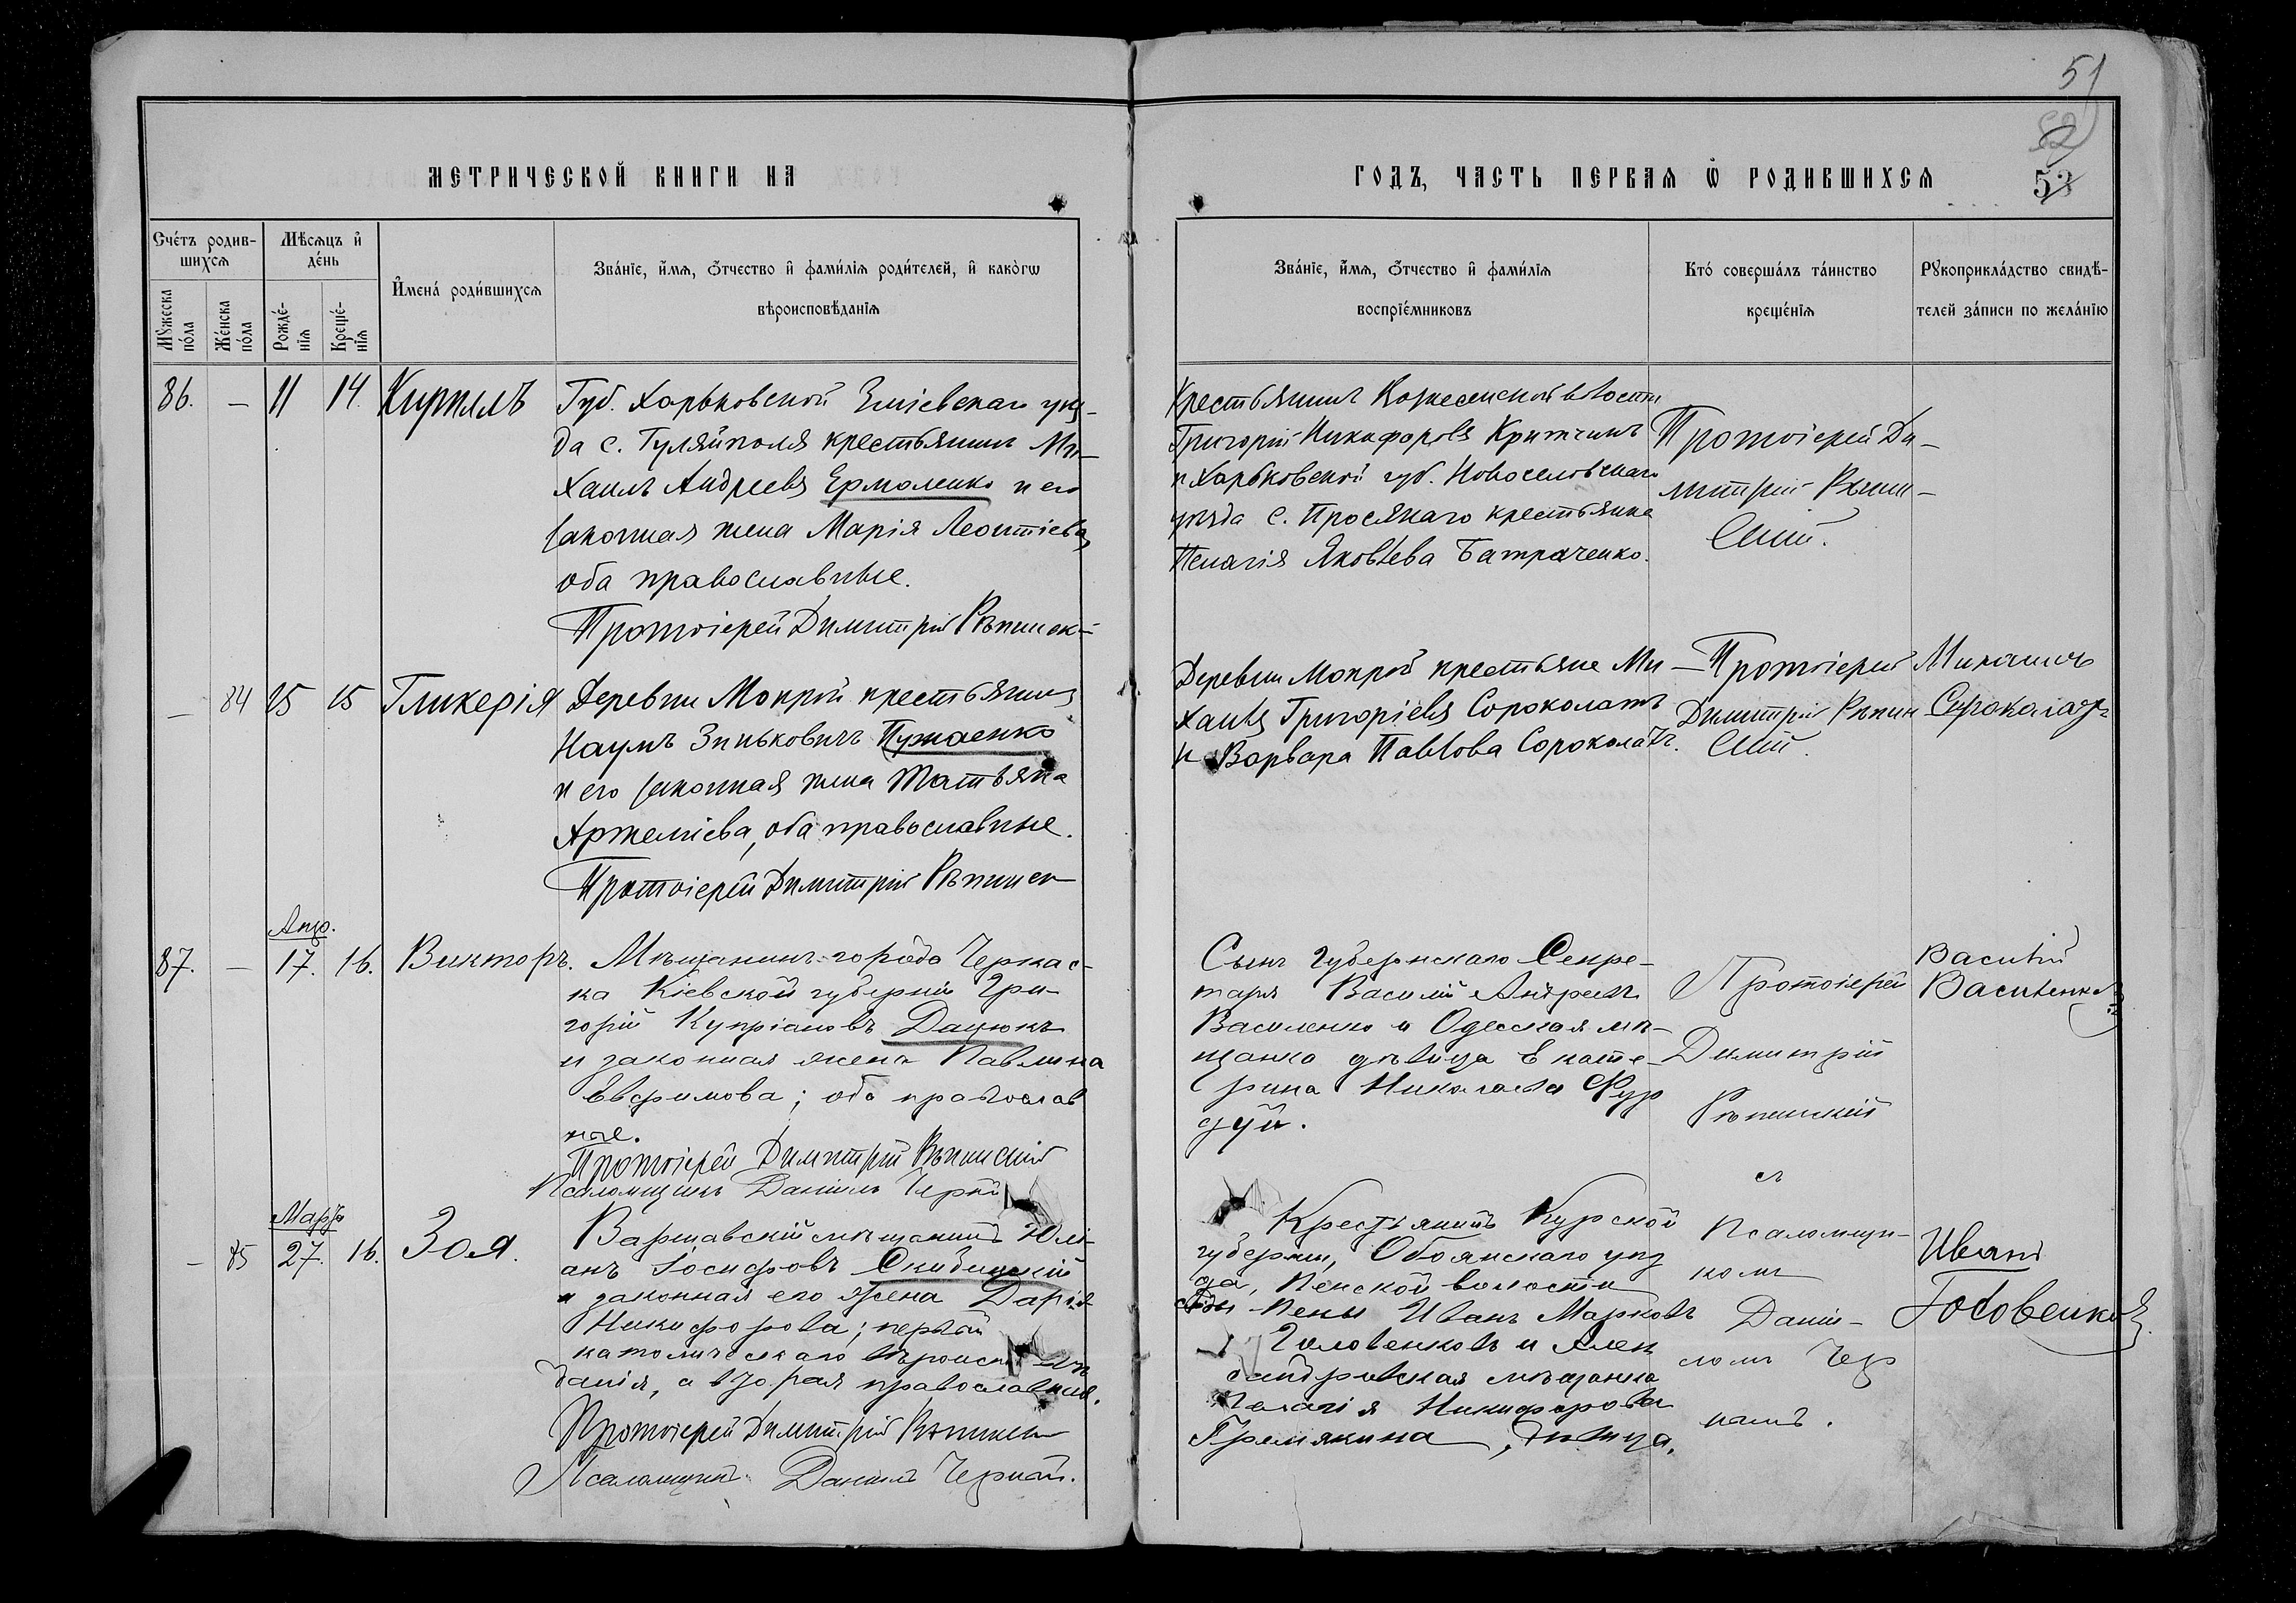 51
52
53
МЕТРИЧЕСКОЙ КНИГИ НА
ГОДЪ, ЧАСТЬ ПЕРВАЯ Ѡ РОДИВШИХСЯ
Счéтъ родив-
шихся
Мѣсяцъ и
дéнь
Мꙋжеска
пóла
Жéнска
пóла
Рождé-
нiя
Крещé-
нiя
Именá роди́вшихся
Звáнїе, и́мя, ѻ́тчество и фами́лїя роди́телей, и како́гѡ
вѣроисповѣ́данїя
Звáнїе, и́мя, ѻ́тчество и фами́лїя
воспрїéмниковъ
Ктó совершáлъ тáинство
крещéнїя
Рꙋкоприклáдство свидѣ́-
телей зáписи по желáнїю
86. — 11 14. Кириллъ
Губ. Харьковской Зміевскаго уѣз-
да с. Гуляйполя крестьянинъ Ми-
хаилъ Андреевъ Ермоленко и его
законная жена Марія Леонтіева,
оба православные.
Протоіерей Димитрій Рѣпинск-
Крестьянинъ Вознесенской волости
Григорій Никифоровъ Критчинъ
и Харьковской губ. Новоселовскаго
уѣзда с. Просянаго крестьянка
Пелагія Яковлева Батраченко.
Протоіерей Ди-
митрій Рѣпин-
скій.
— 84 15 15 Гликерія
Деревни Мокрой крестьянинъ
Наумъ Зиньковичъ Пужаенко
и его законная жена Татьяна
Артеміева, оба православные.
Протоіерей Димитрій Рѣпинск
Деревни Мокрой крестьяне Ми-
хаилъ Григорьевъ Сороколатъ
и Варвара Павлова Сороколатъ.
Протоіерей
Димитрій Рѣпин
скій.
Михаилъ
Сороколатъ
Апр.
87. — 17. 16. Викторъ.
Мѣщанинъ города Черкас-
ка Кіевской губерніи Гри-
горій Купріановъ Дацюкъ
и законная жена Павлина
Евфимова; оба православ
ные.
Протоіерей Димитрій Рѣпинскій
Псаломщикъ Даніилъ Черн
Сынъ Губернскаго Секре-
таря Василій Андреевъ
Василенко и Одесская мѣ-
щанка дѣвица Екате-
рина Николаева Фур
дуй.
Протоіерей
Димитрій
Рѣпинскій
съ
Псаломщи-
комъ
Даніи-
ломъ Чер
нымъ.
Василій
Василенко
Марта
— 85 27. 16. Зоя.
Варшавскій мѣщанинъ Юлі-
анъ Іосифовъ Скибицкій
и законная его жена Дарія
Никифорова; первый
католическаго вѣроиспов
данія, а вторая православная.
Протоіерей Димитрій Рѣпинск
Псаломщикъ Даніилъ Черный.
Крестьянинъ Курской
губерніи, Обоянскаго уѣз
да, Пенской волости
Пены Иванъ Марковъ
Головенковъ и Алек
сандровская мѣщанка
Пелагія Никифорова
Гремякина, дѣвица.
Иванъ
Головенковъ